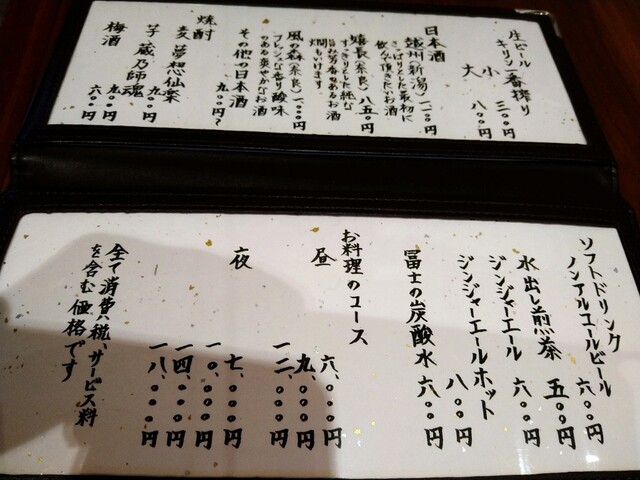 生ビール
キリン一番搾り
小 三〇〇円
大 八〇〇円
日本酒
越州(新潟) 一二〇〇円
さっぱりとした最初に
飲んで頂きたいお酒
嬉長(奈良) 八五〇円
すっきりとした純な
旨みと力香のあるお酒
燗もいけます。
風の森(奈良) 一、〇〇〇円
フレッシュな香り酸味
のある爽やかなお酒
その他の日本酒 九〇〇円〜
焼酎
麦 夢想仙楽 九〇〇円
芋 蔵乃師魂 九〇〇円
梅酒 六〇〇円
ソフトドリンク
ノンアルコールビール 六〇〇円
水出し煎茶 五〇〇円
ジンジャーエール 六〇〇円
ジンジャーエールホット 八〇〇円
富士の炭酸水 六〇〇円
お料理のコース
昼 六、〇〇〇円
九、〇〇〇円
一二、〇〇〇円
夜 七、〇〇〇円
一〇、〇〇〇円
一四、〇〇〇円
一八、〇〇〇円
全て消費税、サービス料
を含む価格です